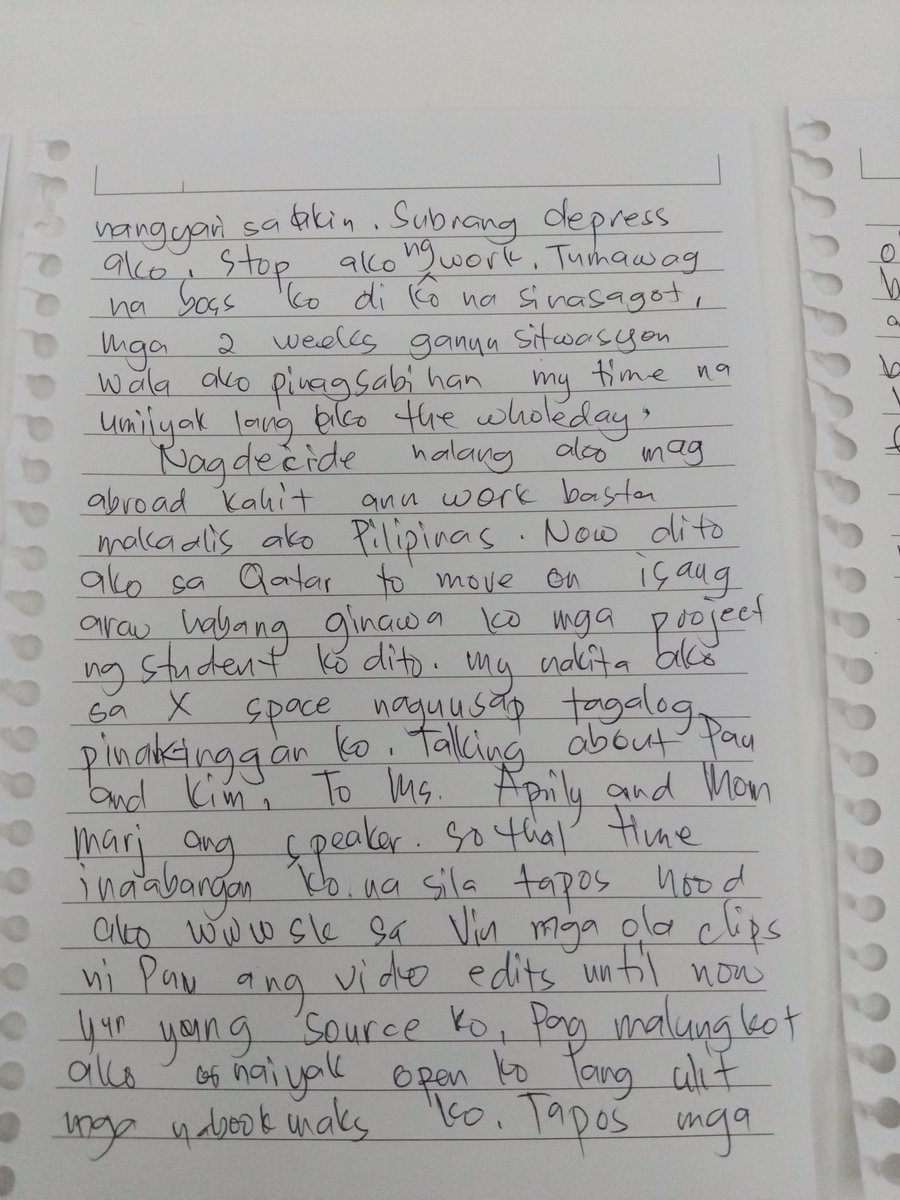 nangyari sa akin. Subrang depress
ako. Stop ako ng work. Tumawag
na boss ko di ko na sinasagot,
mga 2 weeks ganyn sitwasyon
wala ako pinagsabihan my time na
umiiyak lang ako the wholeday.
Nagdecide nalang ako mag
abroad kahit ann work basta
makaalis ako Pilipinas. Now dito
ako sa Qatar to move on isang
araw habang ginawa ko mga project
ng student ko dito. my nakita ako
sa X space naguusap tagalog
pinakinggan ko. Talking about Pau
and Kim, To Ms. Aprily and Mom
marj ang speaker. So that time
inaabangan ko na sila tapos nood
ako WWWSK sa Viu mga old clips
ni Pau ang video edits until now
yun young source ko, Pag malungkot
ako naiyak open ko lang ulit
mga bookmaks ko. Tapos mga
o
b
a
b